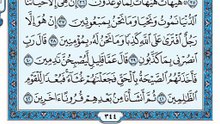 ۞ هَيْهَاتَ هَيْهَاتَ لِمَا تُوعَدُونَ ٣٦ إِنْ هِىَ إِلَّا حَيَاتُنَا
ٱلدُّنْيَا نَمُوتُ وَنَحْيَا وَمَا نَحْنُ بِمَبْعُوثِينَ ٣٧ إِنْ هُوَ إِلَّا
رَجُلٌ ٱفْتَرَىٰ عَلَى ٱللَّهِ كَذِبًا وَمَا نَحْنُ لَهُۥ بِمُؤْمِنِينَ ٣٨ قَالَ رَبِّ
ٱنصُرْنِى بِمَا كَذَّبُونِ ٣٩ قَالَ عَمَّا قَلِيلٍ لَّيُصْبِحُنَّ نَٰدِمِينَ ٤٠
فَأَخَذَتْهُمُ ٱلصَّيْحَةُ بِٱلْحَقِّ فَجَعَلْنَٰهُمْ غُثَآءً فَبُعْدًا لِّلْقَوْمِ
ٱلظَّٰلِمِينَ ٤١ ثُمَّ أَنشَأْنَا مِنۢ بَعْدِهِمْ قُرُونًا ءَاخَرِينَ ٤٢
٣٤٤